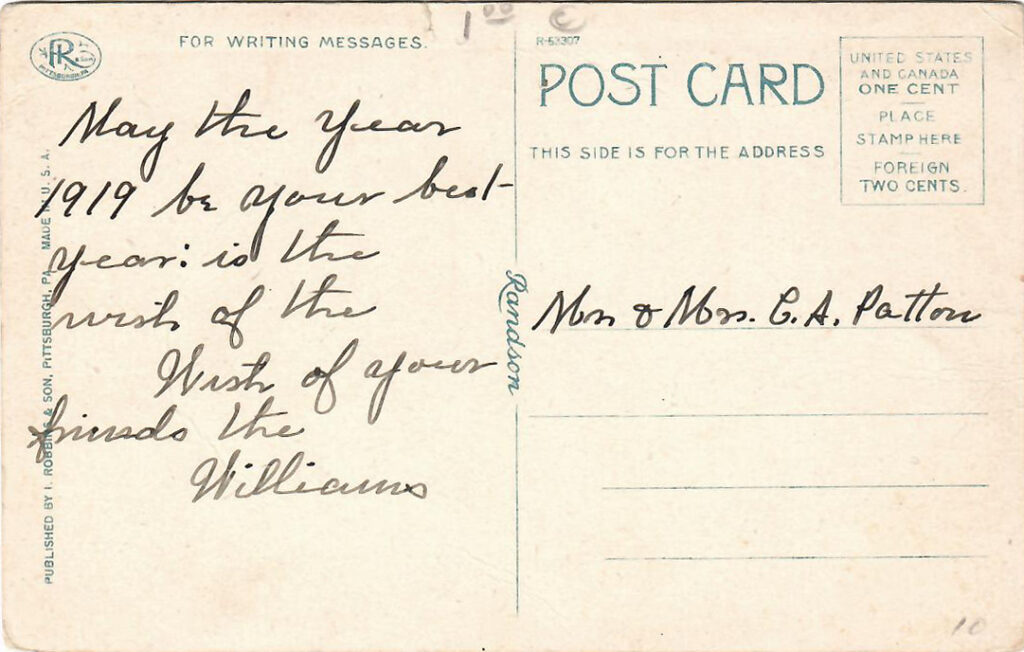 1 00
C
FOR WRITING MESSAGES.
May the year
1919 be your best
year: is the
wish of the
Wish of your
friends the
Williams
PUBLISHED BY I. ROBBINS & SON, PITTSBURGH, PA. MADE IN U. S. A.
PITTSBURGH, PA
Randson
R-53307
POST CARD
THIS SIDE IS FOR THE ADDRESS
UNITED STATES
AND CANADA
ONE CENT
PLACE
STAMP HERE
FOREIGN
TWO CENTS.
Mr & Mrs. C. A. Patton
10